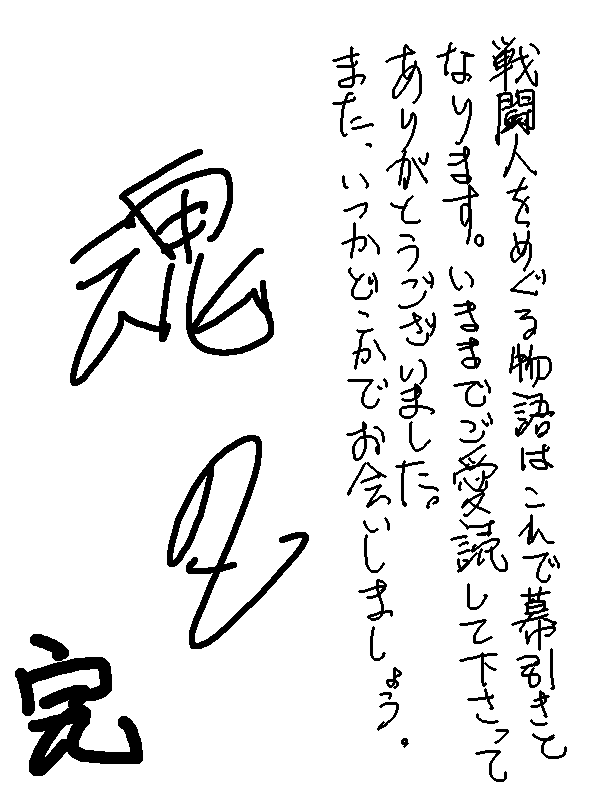 戦闘人をめぐる物語はこれで幕引きと
なります。いままでご愛読して下さって
ありがとうございました。
また、いつかどこかでお会いしましょう.
魂
完